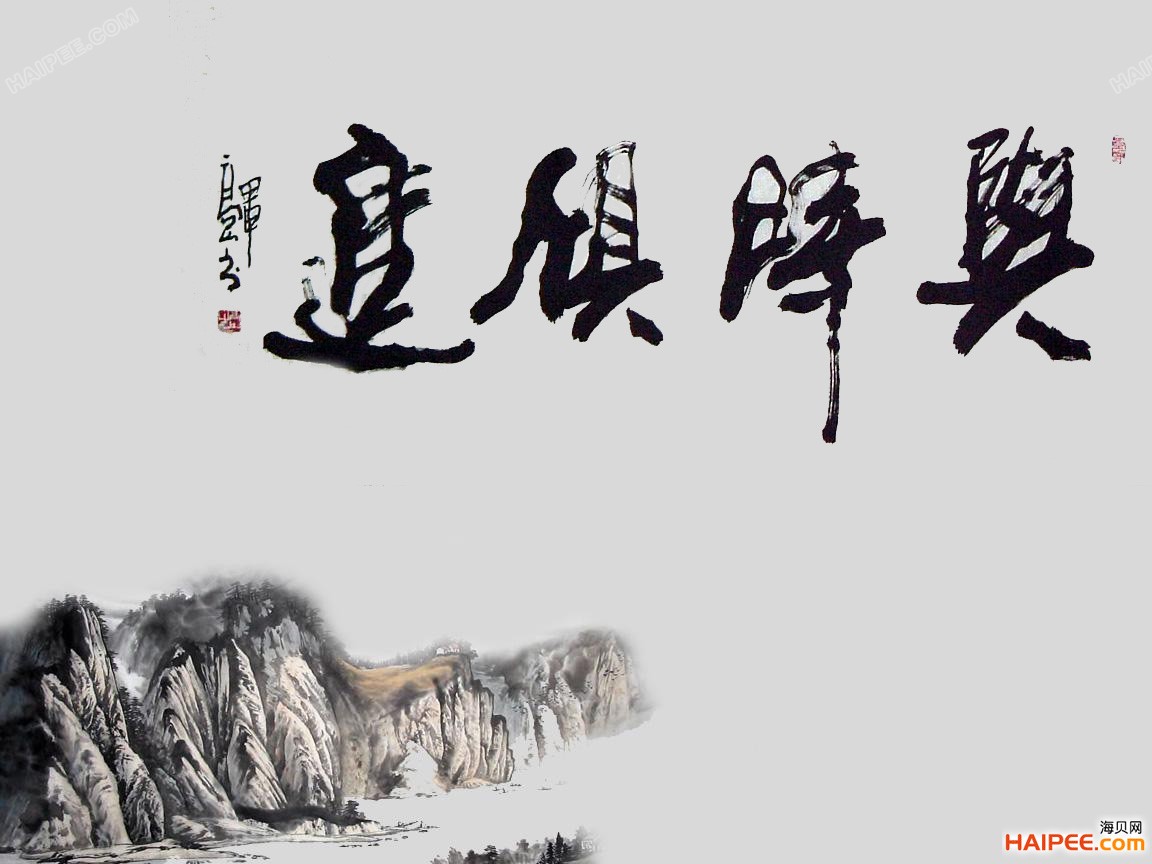 與時俱進
HAIPEE.COM
海贝网
HAIPEE.com